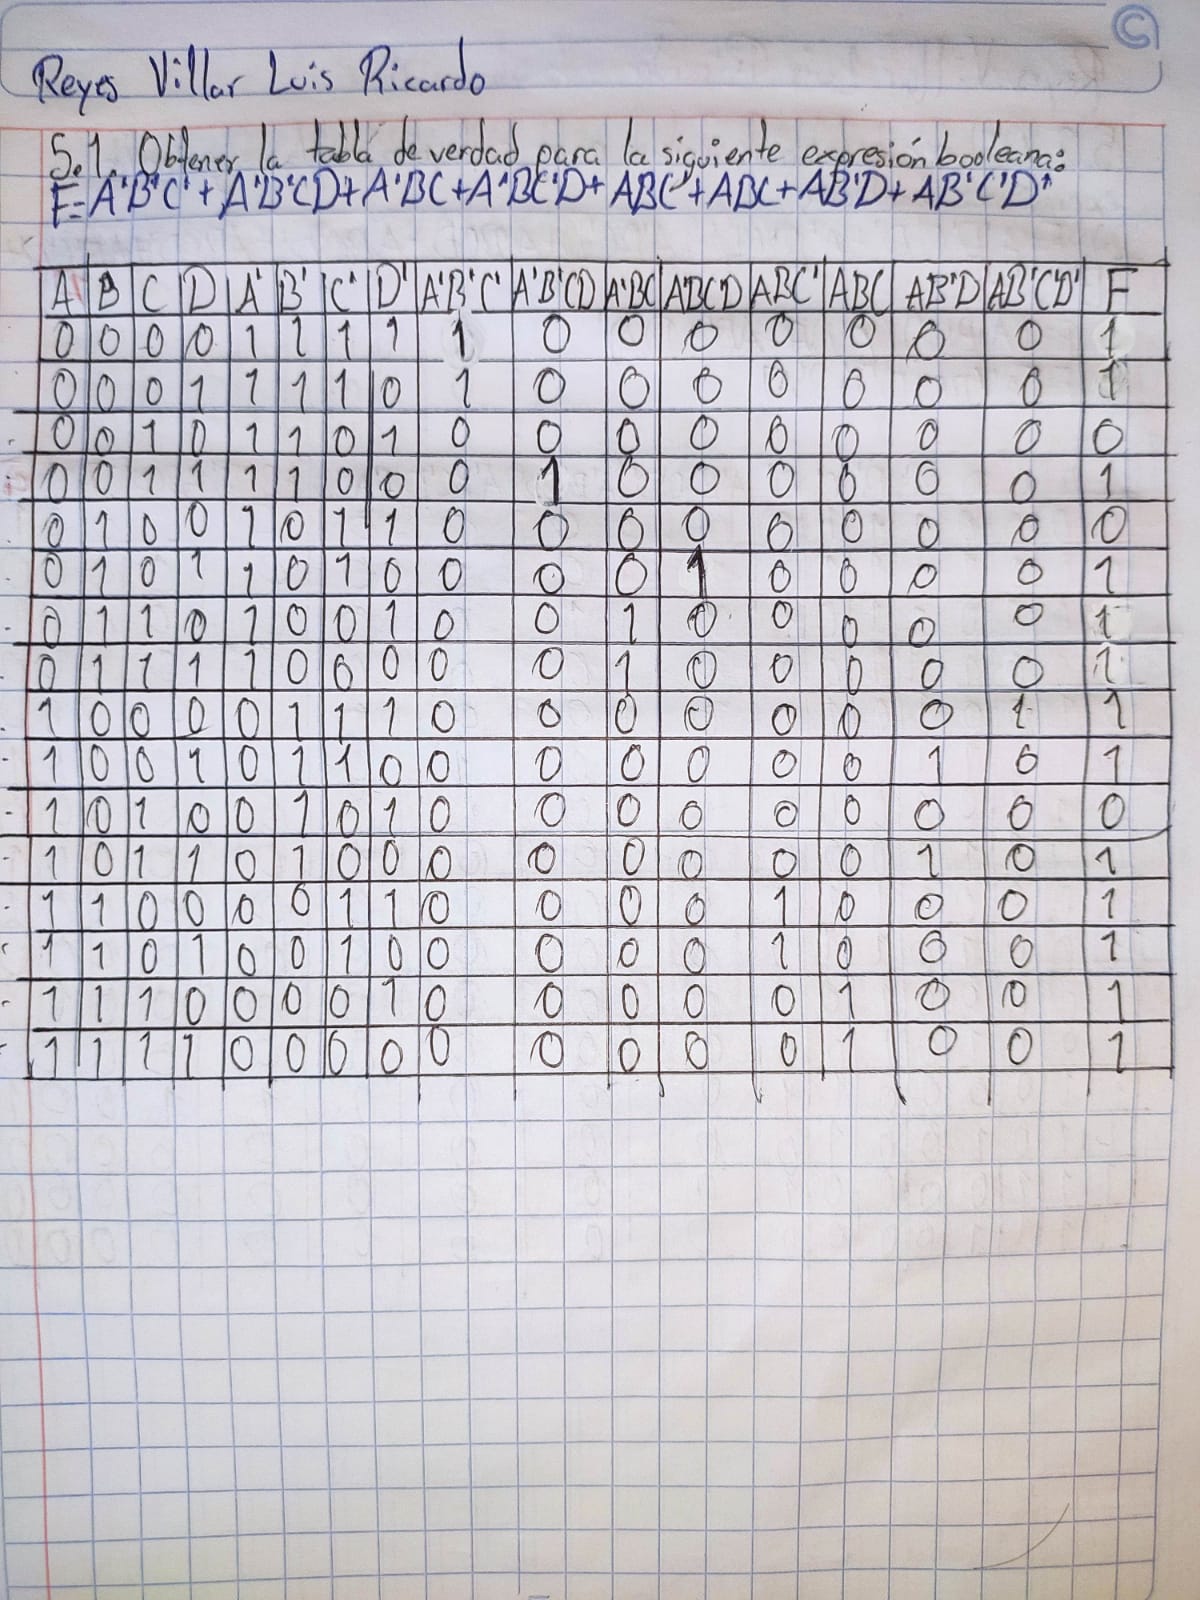 Reyes Villar Luis Ricardo
5.1. Obtener la tabla de verdad para la siguiente expresión booleana:
F=A'B'C'+A'B'CD+A'BC+A'BC'D+ABC'+ABC+AB'D+AB'C'D'
A B C D A' B' C' D' A'B'C' A'B'CD A'BC A'BC'D ABC' ABC AB'D AB'C'D' F
0 0 0 0 1 1 1 1 1 0 0 0 0 0 0 0 1
0 0 0 1 1 1 1 0 1 0 0 0 0 0 0 0 1
0 0 1 0 1 1 0 1 0 0 0 0 0 0 0 0 0
0 0 1 1 1 1 0 0 0 1 0 0 0 0 0 0 1
0 1 0 0 1 0 1 1 0 0 0 0 0 0 0 0 0
0 1 0 1 1 0 1 0 0 0 0 1 0 0 0 0 1
0 1 1 0 1 0 0 1 0 0 1 0 0 0 0 0 1
0 1 1 1 1 0 0 0 0 0 1 0 0 0 0 0 1
1 0 0 0 0 1 1 1 0 0 0 0 0 0 0 1 1
1 0 0 1 0 1 1 0 0 0 0 0 0 0 1 0 1
1 0 1 0 0 1 0 1 0 0 0 0 0 0 0 0 0
1 0 1 1 0 1 0 0 0 0 0 0 0 0 1 0 1
1 1 0 0 0 0 1 1 0 0 0 0 1 0 0 0 1
1 1 0 1 0 0 1 0 0 0 0 0 1 0 0 0 1
1 1 1 0 0 0 0 1 0 0 0 0 0 1 0 0 1
1 1 1 1 0 0 0 0 0 0 0 0 0 1 0 0 1